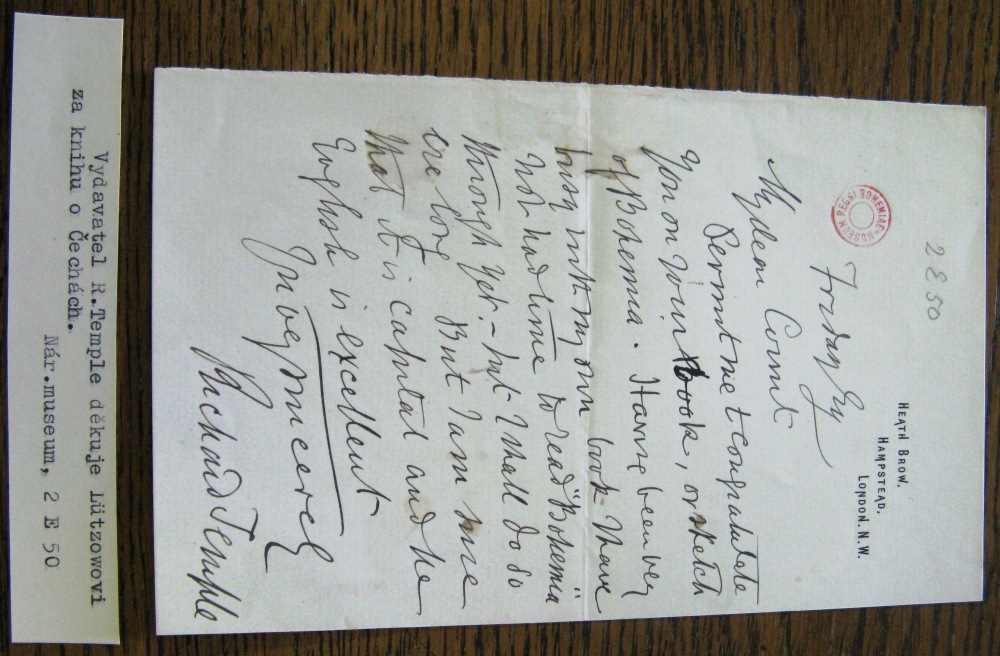 2 E 50
HEATH BROW,
HAMPSTEAD,
LONDON. N.W.
MUSEUM REGNI BOHEMIAE
Friday Ev
My dear Count
Permit me to congratulate
you on your book, or sketch
of Bohemia. Having been very
busy with my own book I have
not had time to read "Bohemia"
through yet. – but I shall do so
ere long. But I am sure
that it is capital and the
English is excellent
Yrs very sincerely
Richard Temple
Vydavatel R.Temple děkuje Lützowovi
za knihu o Čechách.
Nár.museum, 2 E 50